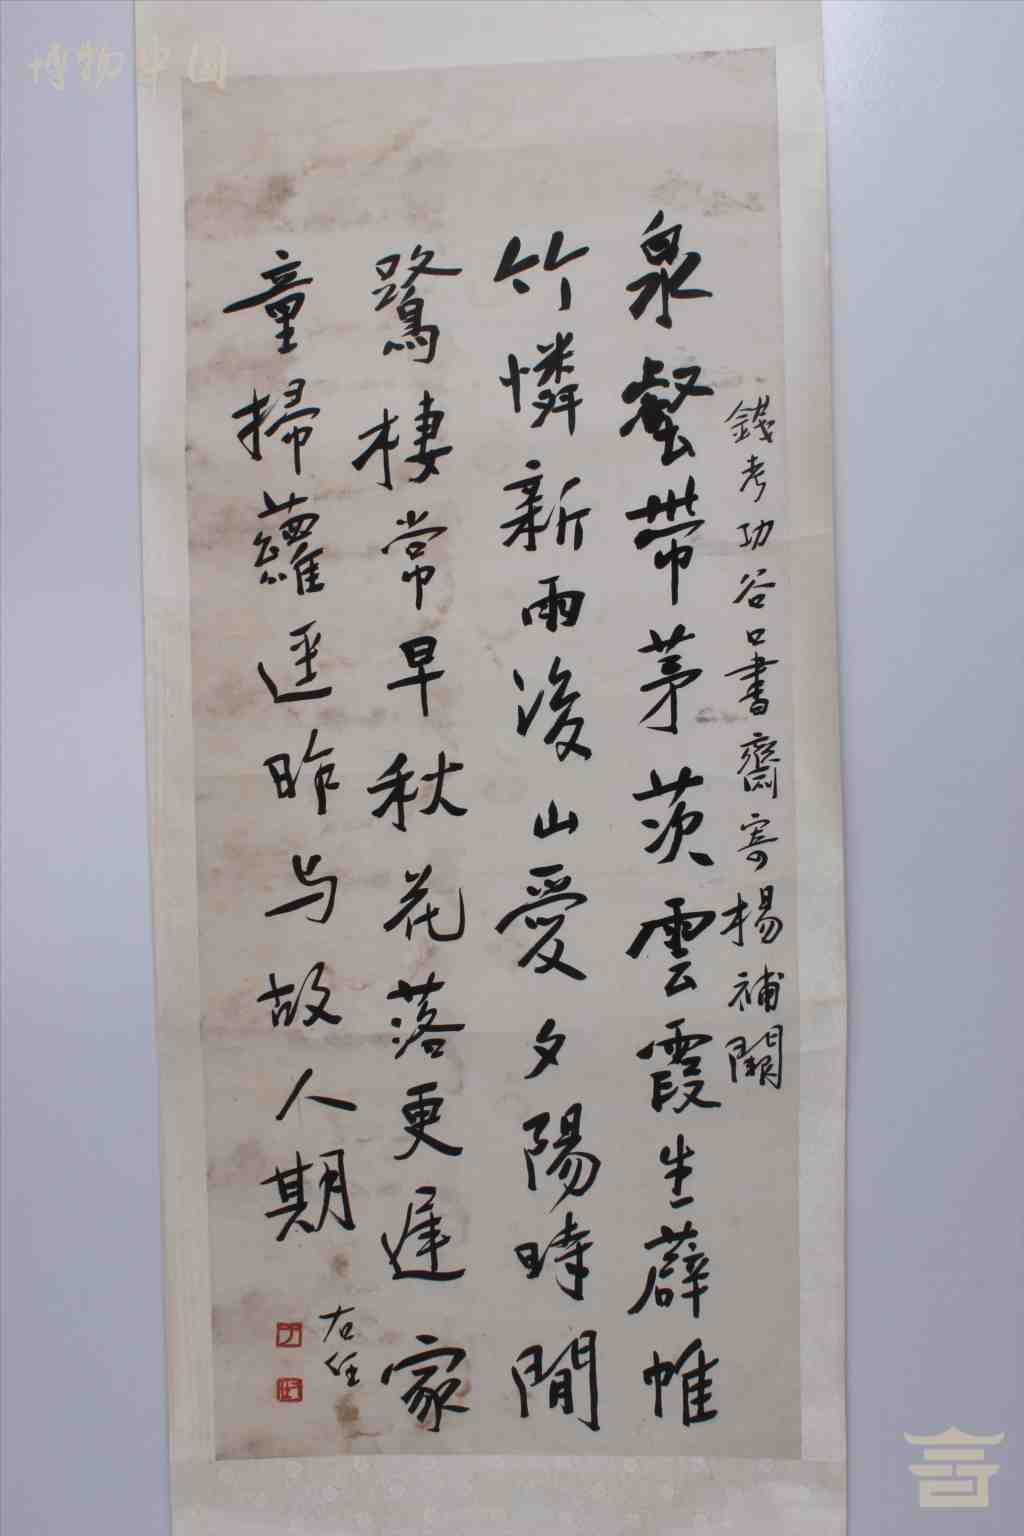 博物中国
錢考功谷口書齋寄楊補闕
泉壑帶茅茨雲霞生薜帷
竹憐新雨後山愛夕陽時閒
鷺棲常早秋花落更遲家
童掃蘿逕昨与故人期
右任